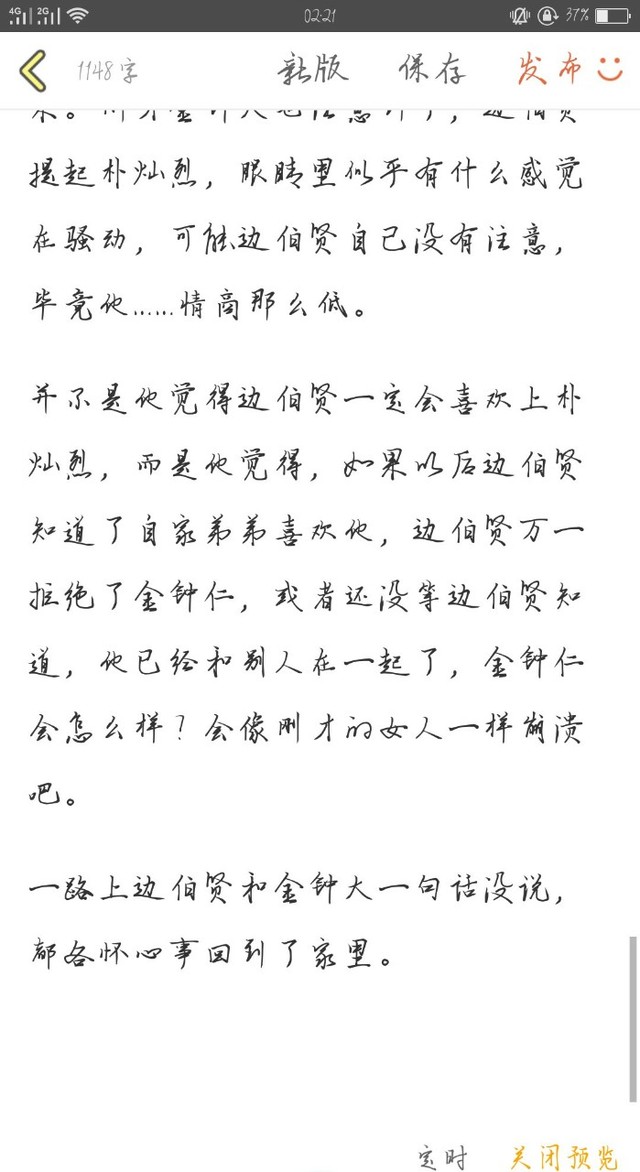 4G 2G 02:21 37%
1148字 新版 保存 发布
提起朴灿烈，眼睛里似乎有什么感觉
在骚动，可能边伯贤自己没有注意，
毕竟他……情商那么低。
并不是他觉得边伯贤一定会喜欢上朴
灿烈，而是他觉得，如果以后边伯贤
知道了自家弟弟喜欢他，边伯贤万一
拒绝了金钟仁，或者还没等边伯贤知
道，他已经和别人在一起了，金钟仁
会怎么样？会像刚才的女人一样崩溃
吧。
一路上边伯贤和金钟大一句话没说，
都各怀心事回到了家里。
定时 关闭预览